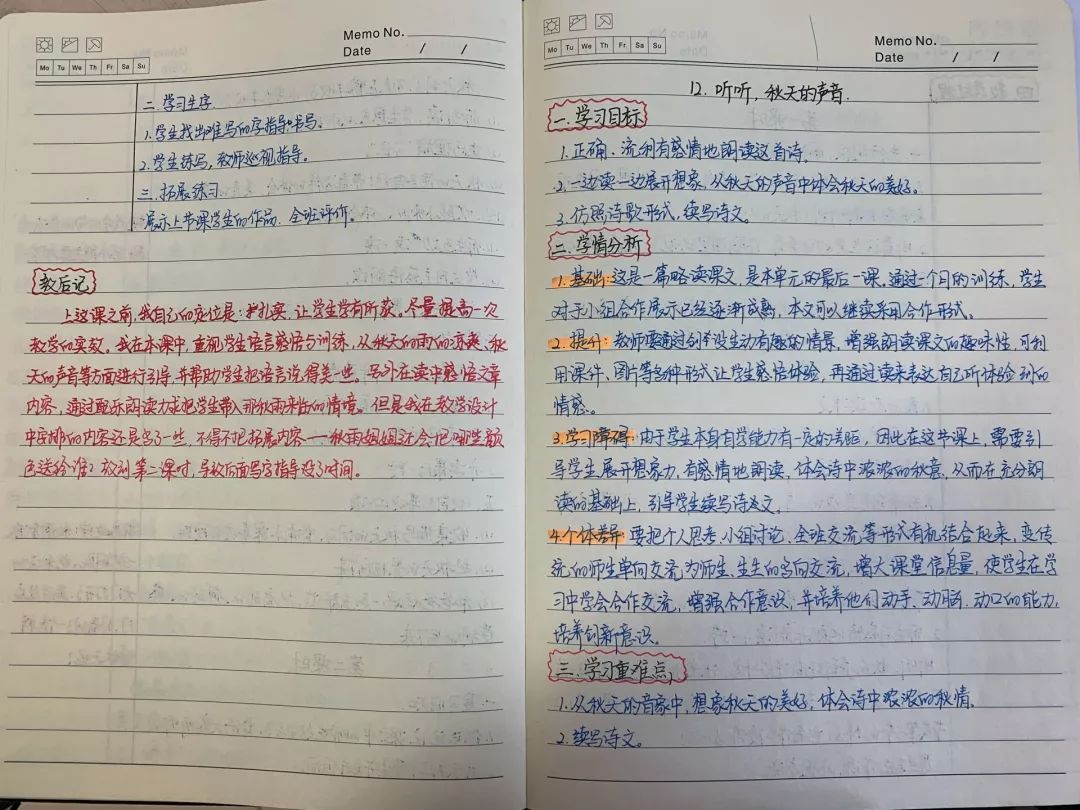 Memo No.
Date / /
Mo Tu We Th Fr Sa Su
二.学习生字
1.学生找出难写的字指导书写.
2.学生练写,教师巡视指导。
三.拓展练习.
展示上节课学生的作品.全班评价。
教后记
上这课之前,我自己的定位是:扎实,让学生学有所获。尽量提高一次
教学的实效。我在本课中,重视学生语言感悟与训练,从秋天的雨的凉爽、秋
天的声音等方面进行引导,并帮助学生把语言说得美一些。另外在读中感悟文章
内容,通过配乐朗读力求把学生带入那秋雨来临的情境。但是我在教学设计
中安排的内容还是多了一些,不得不把拓展内容——秋雨姐姐还会把哪些颜
色送给谁?放到第二课时,导致后面写字指导没了时间。
Memo No.
Date / /
Mo Tu We Th Fr Sa Su
12.听听,秋天的声音.
一.学习目标
1.正确、流利有感情地朗读这首诗.
2.一边读一边展开想象,从秋天的声音中体会秋天的美好。
3.仿照诗歌形式,续写诗文。
二.学情分析
1.基础:这是一篇略读课文,是本单元的最后一课,通过一个月的训练,学生
对于小组合作展示已经逐渐成熟,本文可以继续采用合作形式。
2.提升:教师要通过创设生动有趣的情景,增强朗读课文的趣味性,可利
用课件、图片等多种形式让学生感悟体验,再通过读来表达自己所体验到的
情感。
3.学习障碍:由于学生本身自学能力有一定的差距,因此在这节课上,需要引
导学生展开想象力,有感情地朗读,体会诗中浓浓的秋意,从而在充分朗
读的基础上,引导学生续写诗文.
4.个体差异:要把个人思考、小组讨论、全班交流,等形式有机结合起来,变传
统的师生单向交流为师生、生生的多向交流,增大课堂信息量,使学生在学
习中学会合作交流,增强合作意识,并培养他们动手、动脑、动口的能力,
培养创新意识。
三.学习重难点,
1.从秋天的音象中,想象秋天的美好,体会诗中浓浓的秋情.
2.续写诗文。